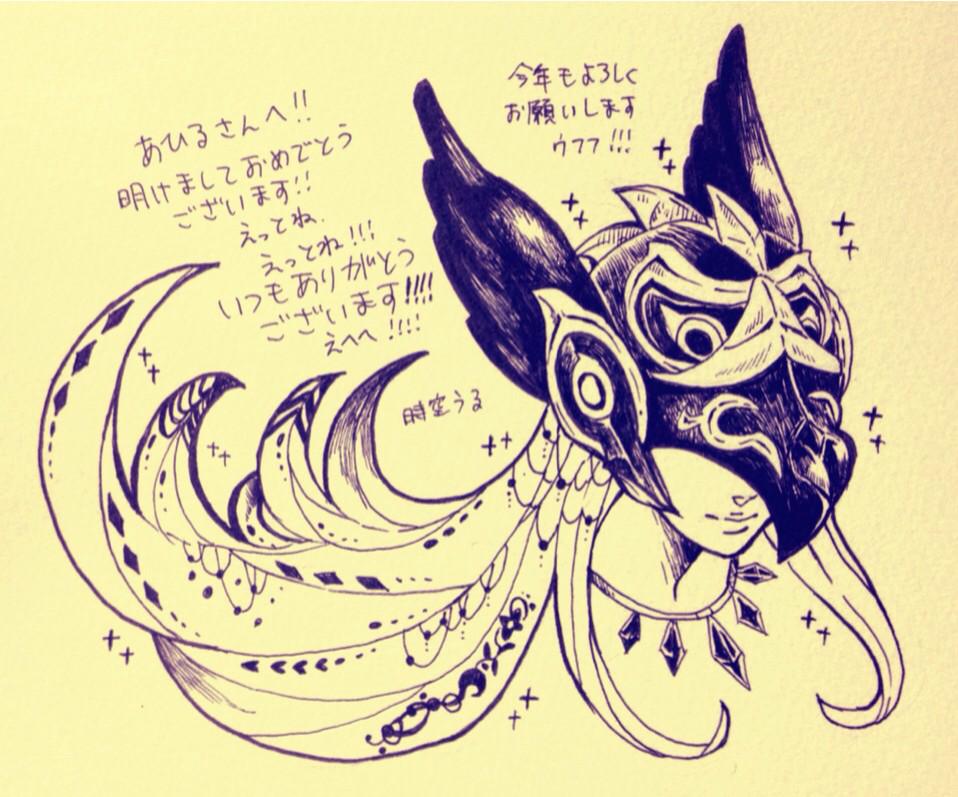 あひるさんへ!!
明けましておめでとう
ございます!!
えっとね、
えっとね!!!
いつもありがとう
ございます!!!!
えへへ!!!!
時空うる
今年もよろしく
お願いします
ウフフ!!!